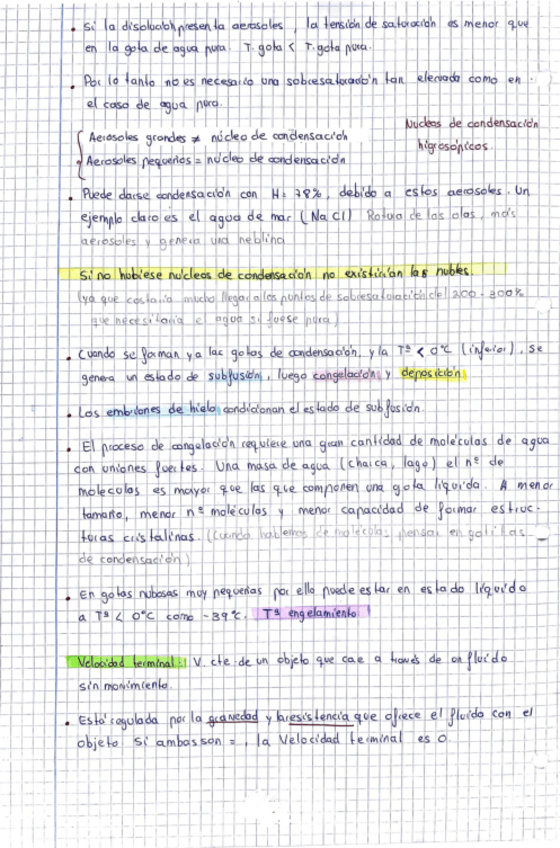 • Si la disolución presenta aerosoles, la tensión de saturación es menor que
en la gota de agua pura. T. gota < T. gota pura.
• Por lo tanto no es necesario una sobresaturación tan elevada como en
el caso de agua pura.
Aerosoles grandes ≠ núcleo de condensación
Aerosoles pequeños = núcleo de condensación
Nucleos de condensación
higroscópicos.
• Puede darse condensación con H = 78%, debido a estos aerosoles. Un
ejemplo claro es el agua de mar (NaCl) Rotura de las olas, más
aerosoles y genera una neblina
Si no hubiese núcleos de condensación no existirían las nubes.
(ya que costaría mucho llegar a los puntos de sobresaturación del 200 - 300%
que necesitaría el agua si fuese pura)
• Cuando se forman ya las gotas de condensación, y la Tª < 0°C (inferior), se
genera un estado de subfusión, luego congelación y deposición.
• Los embriones de hielo condicionan el estado de subfusión
• El proceso de congelación requiere una gran cantidad de moléculas de agua
con uniones fuertes. Una masa de agua (charca, lago) el nº de
moléculas es mayor que las que componen una gota líquida. A menor
tamaño, menor nº moléculas y menor capacidad de formar estruc-
turas cristalinas. (Cuando hablemos de molécula, pensar en gotitas
de condensación)
• En gotas nubosas muy pequeñas por ello puede estar en estado líquido
a Tª < 0°C como -39°C. Tª engelamiento
Velocidad terminal: V. cte de un objeto que cae a través de un fluido
sin movimiento.
• Está regulada por la gravedad y la resistencia que ofrece el fluido con el
objeto Si ambas son =, la Velocidad terminal es 0.